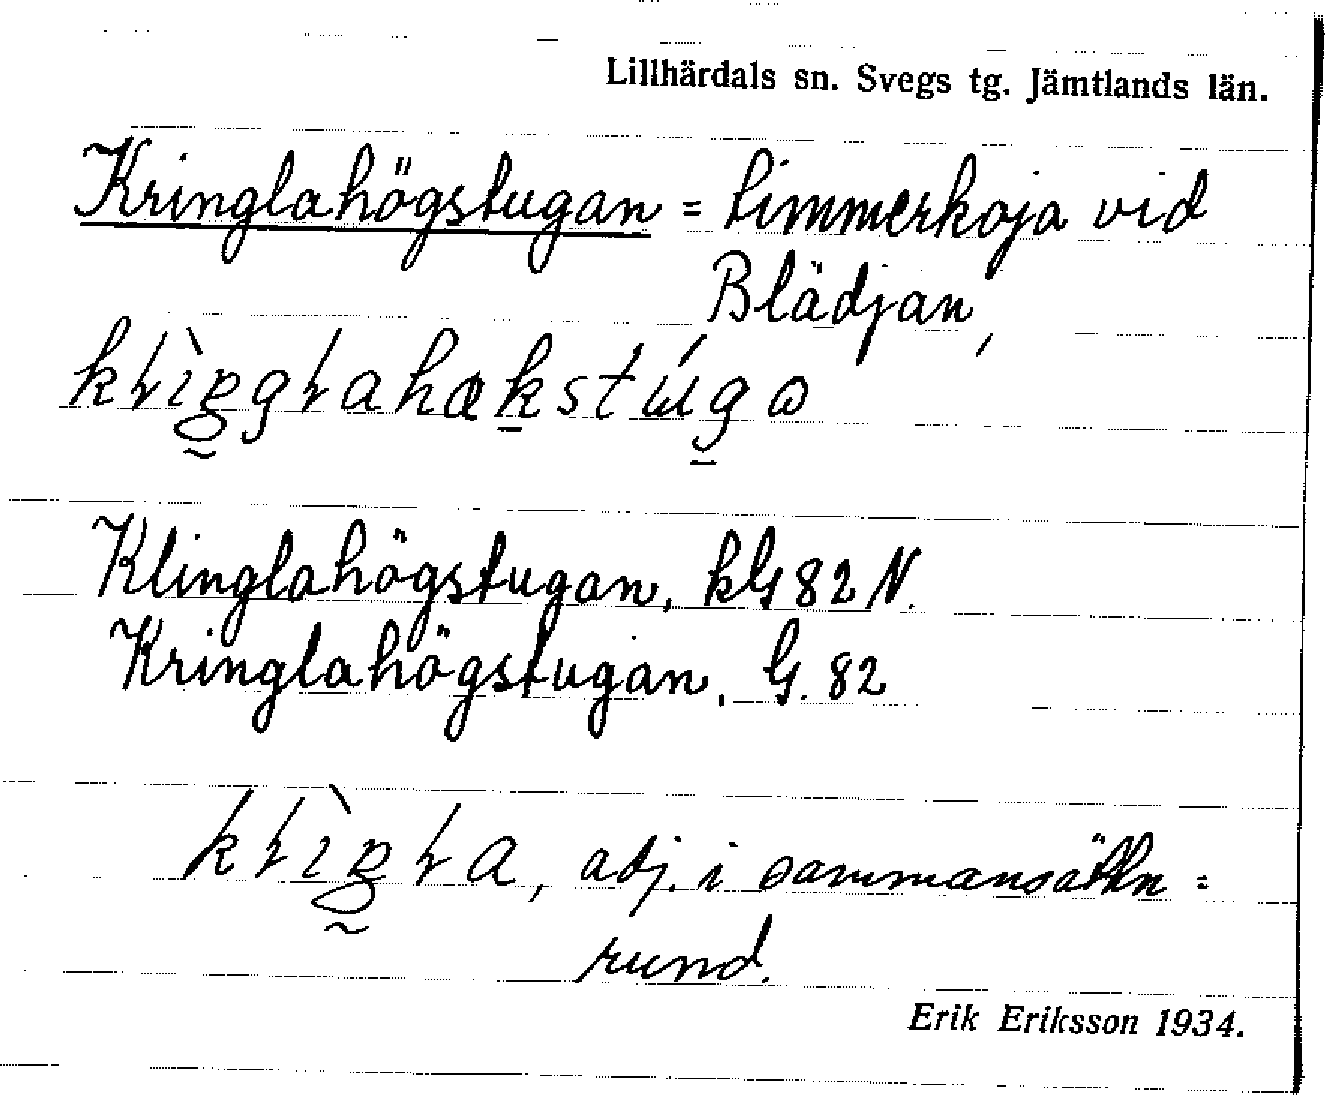 Lillhärdals sn. Svegs tg. Jämtlands län.
Kringlahögstugan = timmerkoja vid
Blädjan,
Klinglahögstugan, kG 82 N.
Kringlahögstugan, G. 82
adj. i sammansättn =
rund.
Erik Eriksson 1934.